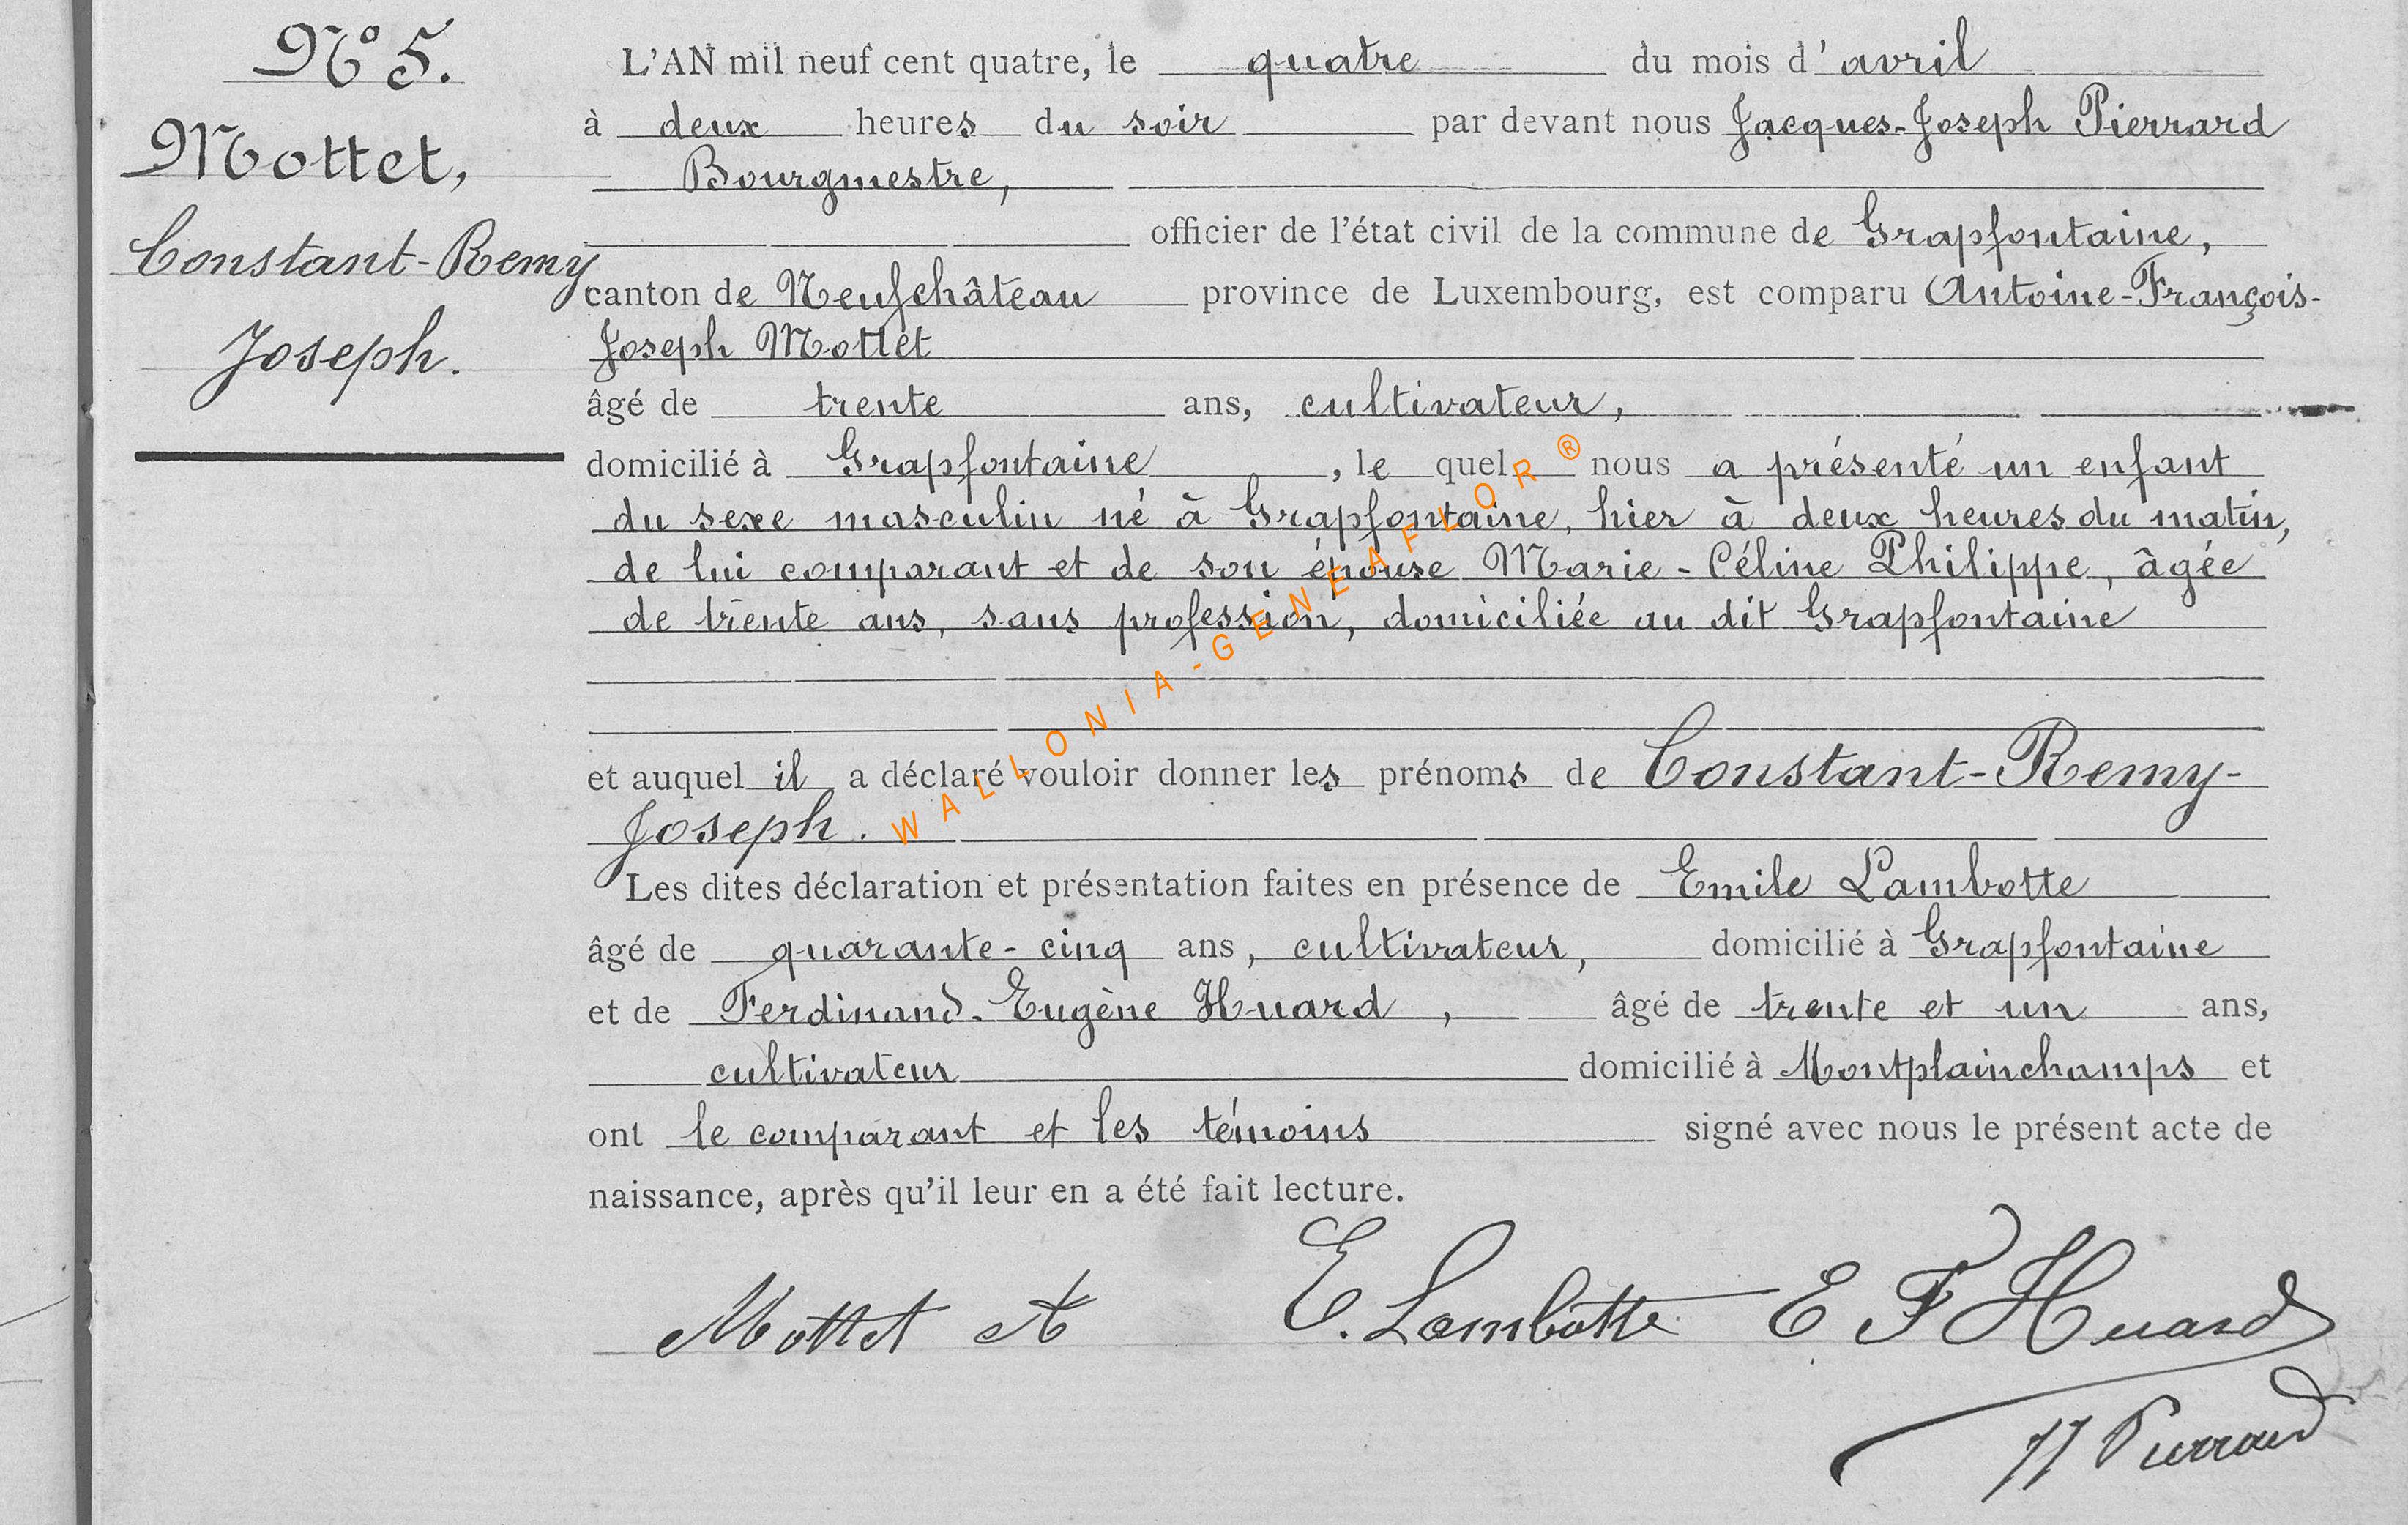 N° 5.
Mottet,
Constant-Remy
Joseph.
L'AN mil neuf cent quatre, le quatre du mois d'avril
à deux heures du soir par devant nous Jacques-Joseph Pierrard
Bourgmestre,
officier de l'état civil de la commune de Grapfontaine,
canton de Neufchâteau province de Luxembourg, est comparu Antoine-François-
Joseph Mottet
âgé de trente ans, cultivateur,
domicilié à Grapfontaine, le quel nous a présenté un enfant
du sexe masculin né à Grapfontaine, hier à deux heures du matin,
de lui comparant et de son épouse Marie-Céline Philippe, âgée
de trente ans, sans profession, domiciliée au dit Grapfontaine
et auquel il a déclaré vouloir donner les prénoms de Constant-Remy-
Joseph.
Les dites déclaration et présentation faites en présence de Emile Lambotte
âgé de quarante-cinq ans, cultivateur, domicilié à Grapfontaine
et de Ferdinand-Eugène Huard, âgé de trente et un ans,
cultivateur domicilié à Montplainchamps et
ont le comparant et les témoins signé avec nous le présent acte de
naissance, après qu'il leur en a été fait lecture.
Mottet A E. Lambotte E F Huard
JJ Pierrard
WALLONIA-GENEAFLOR ®